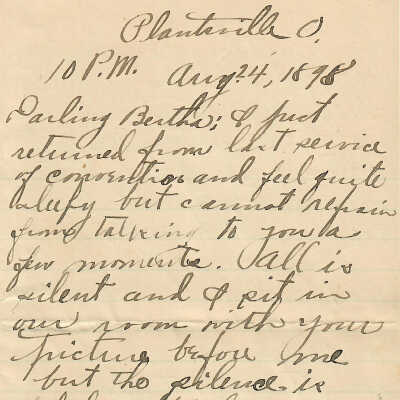 Plantsville O.
10 P.M. Aug. 24, 1898
Darling Bertha; I just
returned from last service
of convention and feel quite
sleepy but cannot refrain
from talking to you a
few moments. All is
silent and I sit in
our room with your
picture before me
but the silence is